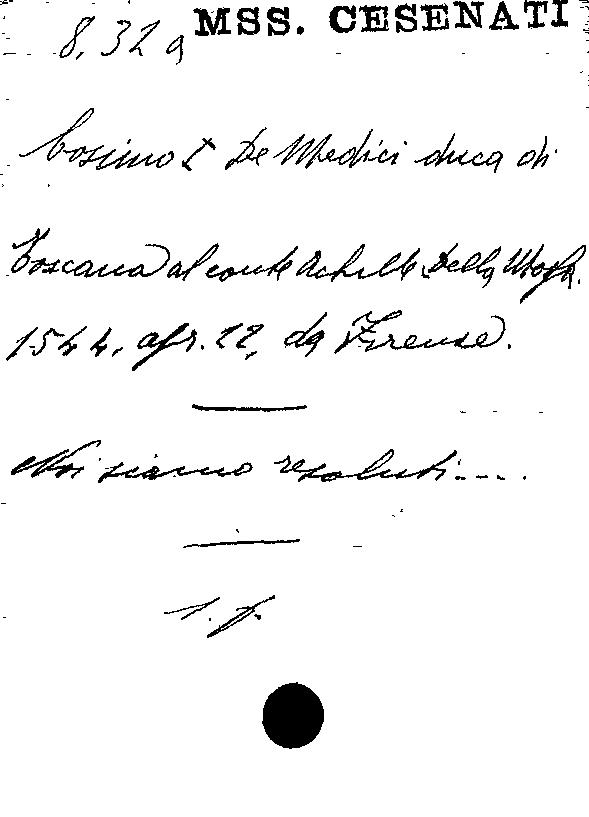 8.32 a MSS. CESENATI
Cosimo I De Medici duca di
Toscana al conte Achille Della
1544, apr. 22, da Firenze.
Noi siamo resoluti....
1. f.